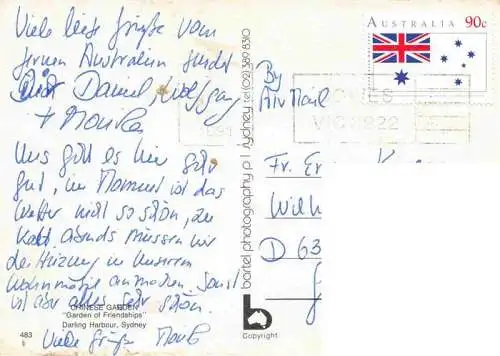 Viele liebe Grüße vom
fernen Australien sendet
Daniel, Wolfgang
+ Monika
Uns geht es hier sehr
gut, im Moment ist das
Wetter nicht so schön, zu
kalt. Abends müssen wir
die Heizung in unserem
Wohnmobil anmachen. Sonst
ist aber alles sehr schön.
Viele Grüße Monika
CHINESE GARDEN
"Garden of Friendships"
Darling Harbour, Sydney
483
bartel photography p l sydney tel (02) 389 8310
b
Copyright
AUSTRALIA 90c
VIC 3922
By
Air Mail
Fr.
Wilh
D 63